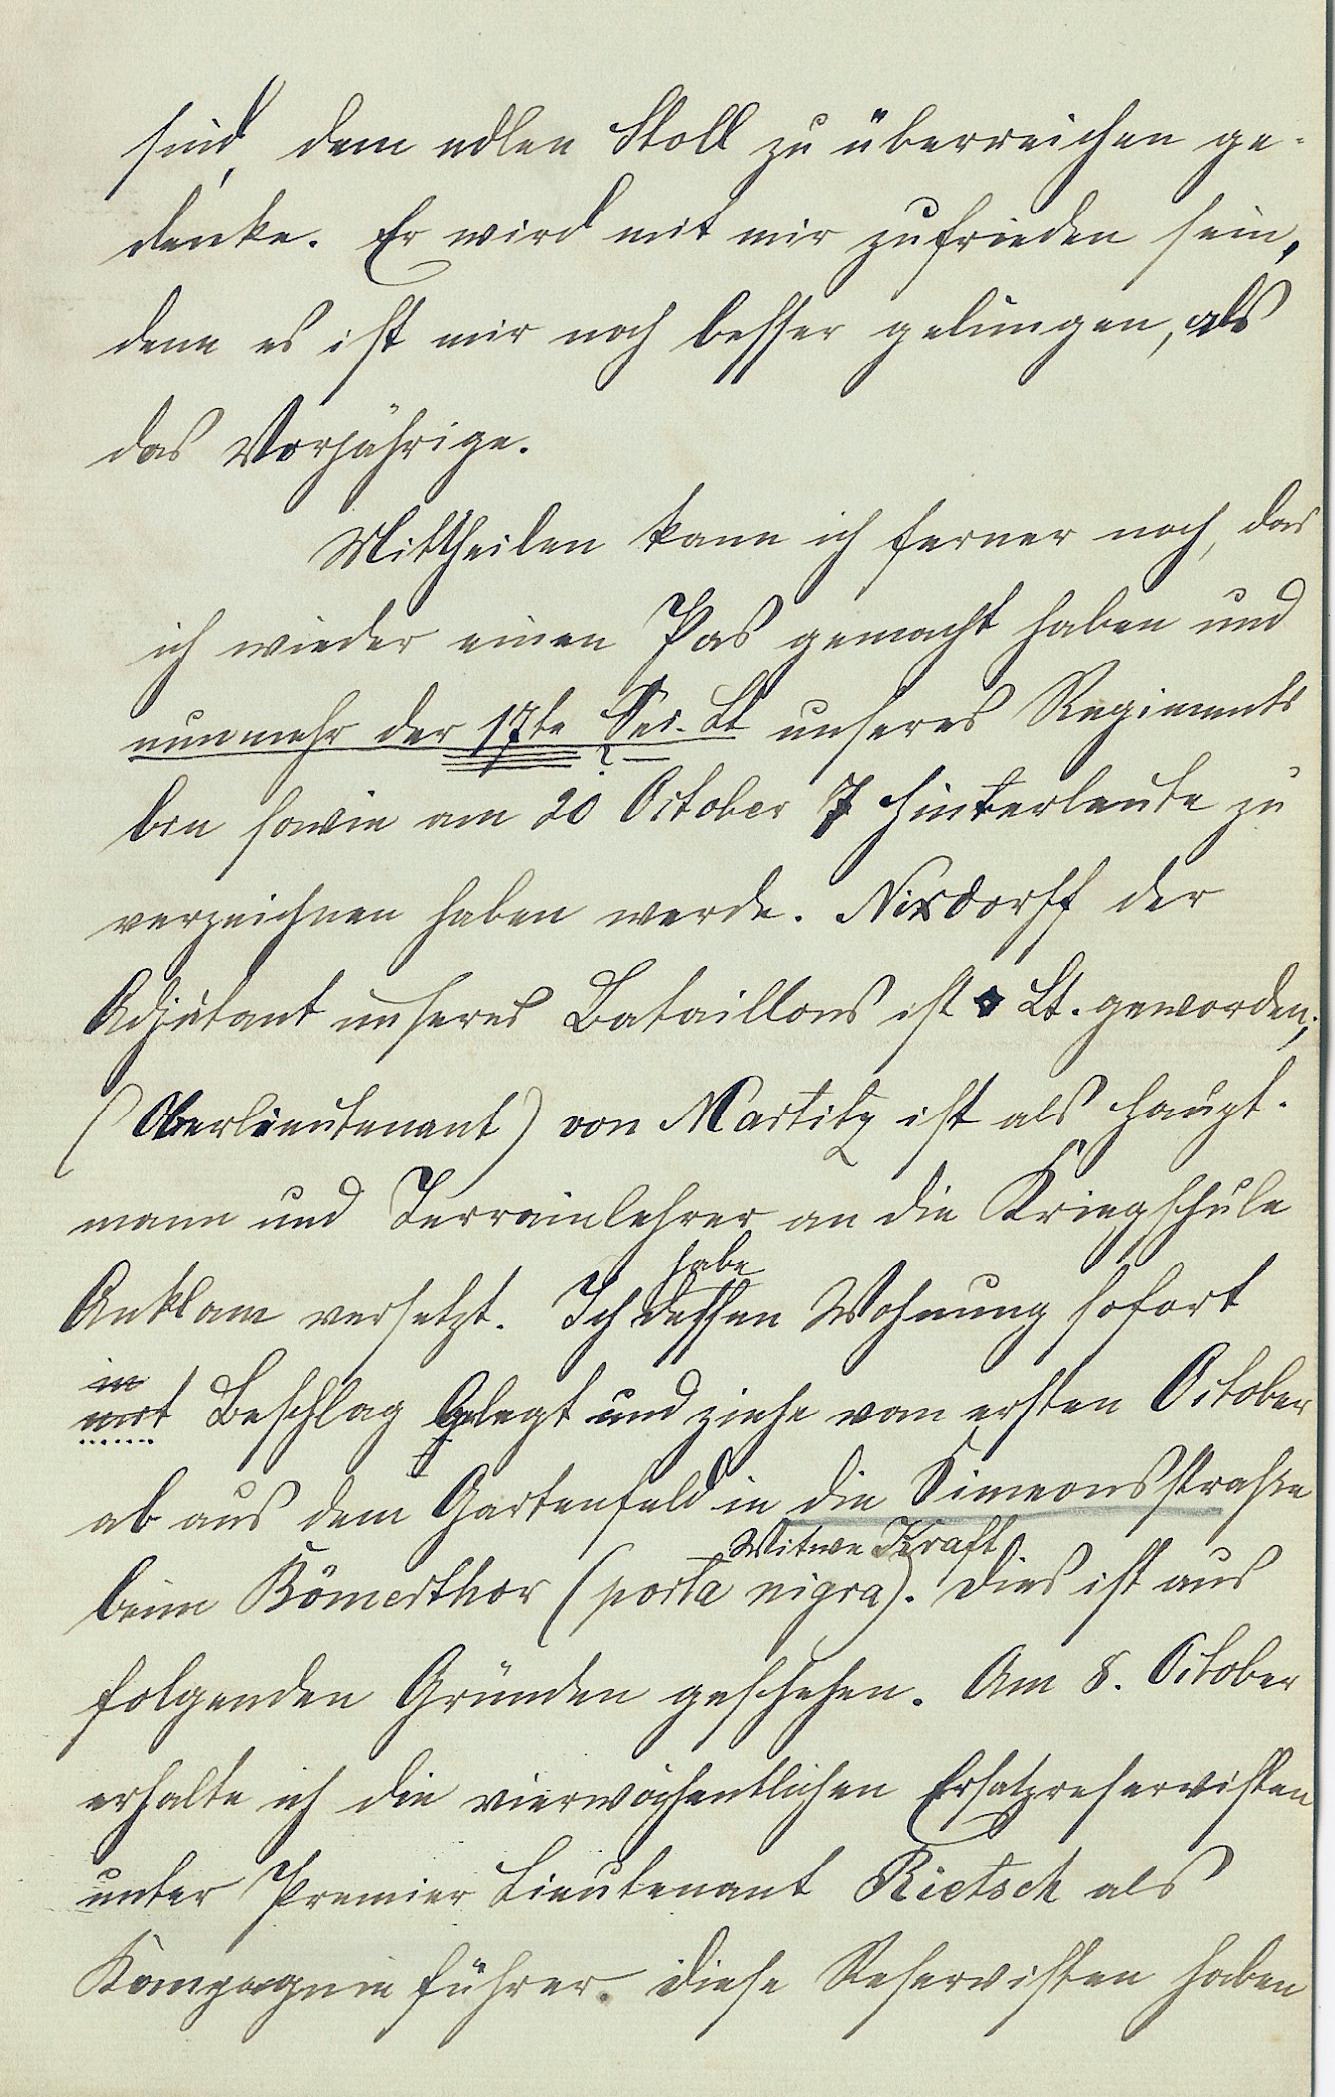 sind, dem edlen Stoll zu überreichen ge-
denke. Er wird mit mir zufrieden sein,
denn es ist mir noch besser gelungen, als
das Vorjährige.
Mittheilen kann ich ferner noch, das
ich wieder einen Pas gemacht haben und
nunmehr der 17te Sec. Lt unseres Regiments
bin sowie am 20 October 7 Hinterleute zu
verzeichnen haben werde. Nixdorff der
Adjutant unseres Bataillons ist Lt. geworden;
(Oberlieutenant) von Martitz ist als Haupt-
mann und Terrainlehrer an die Kriegschule
Anklam versetzt. Ich habe dessen Wohnung sofort
in mit Beschlag gelegt und ziehe vom ersten October
ab aus dem Gartenfeld in die Simeonsstraße
Witwe Kraft
beim Römerthor (porta nigra). Dies ist aus
folgenden Gründen geschehen. Am 8. October
erhalte ich die vierwöchentlichen Ersatzreservisten
unter Premier Lieutenant Rietsch als
Kompagnieführer. Diese Reservisten haben